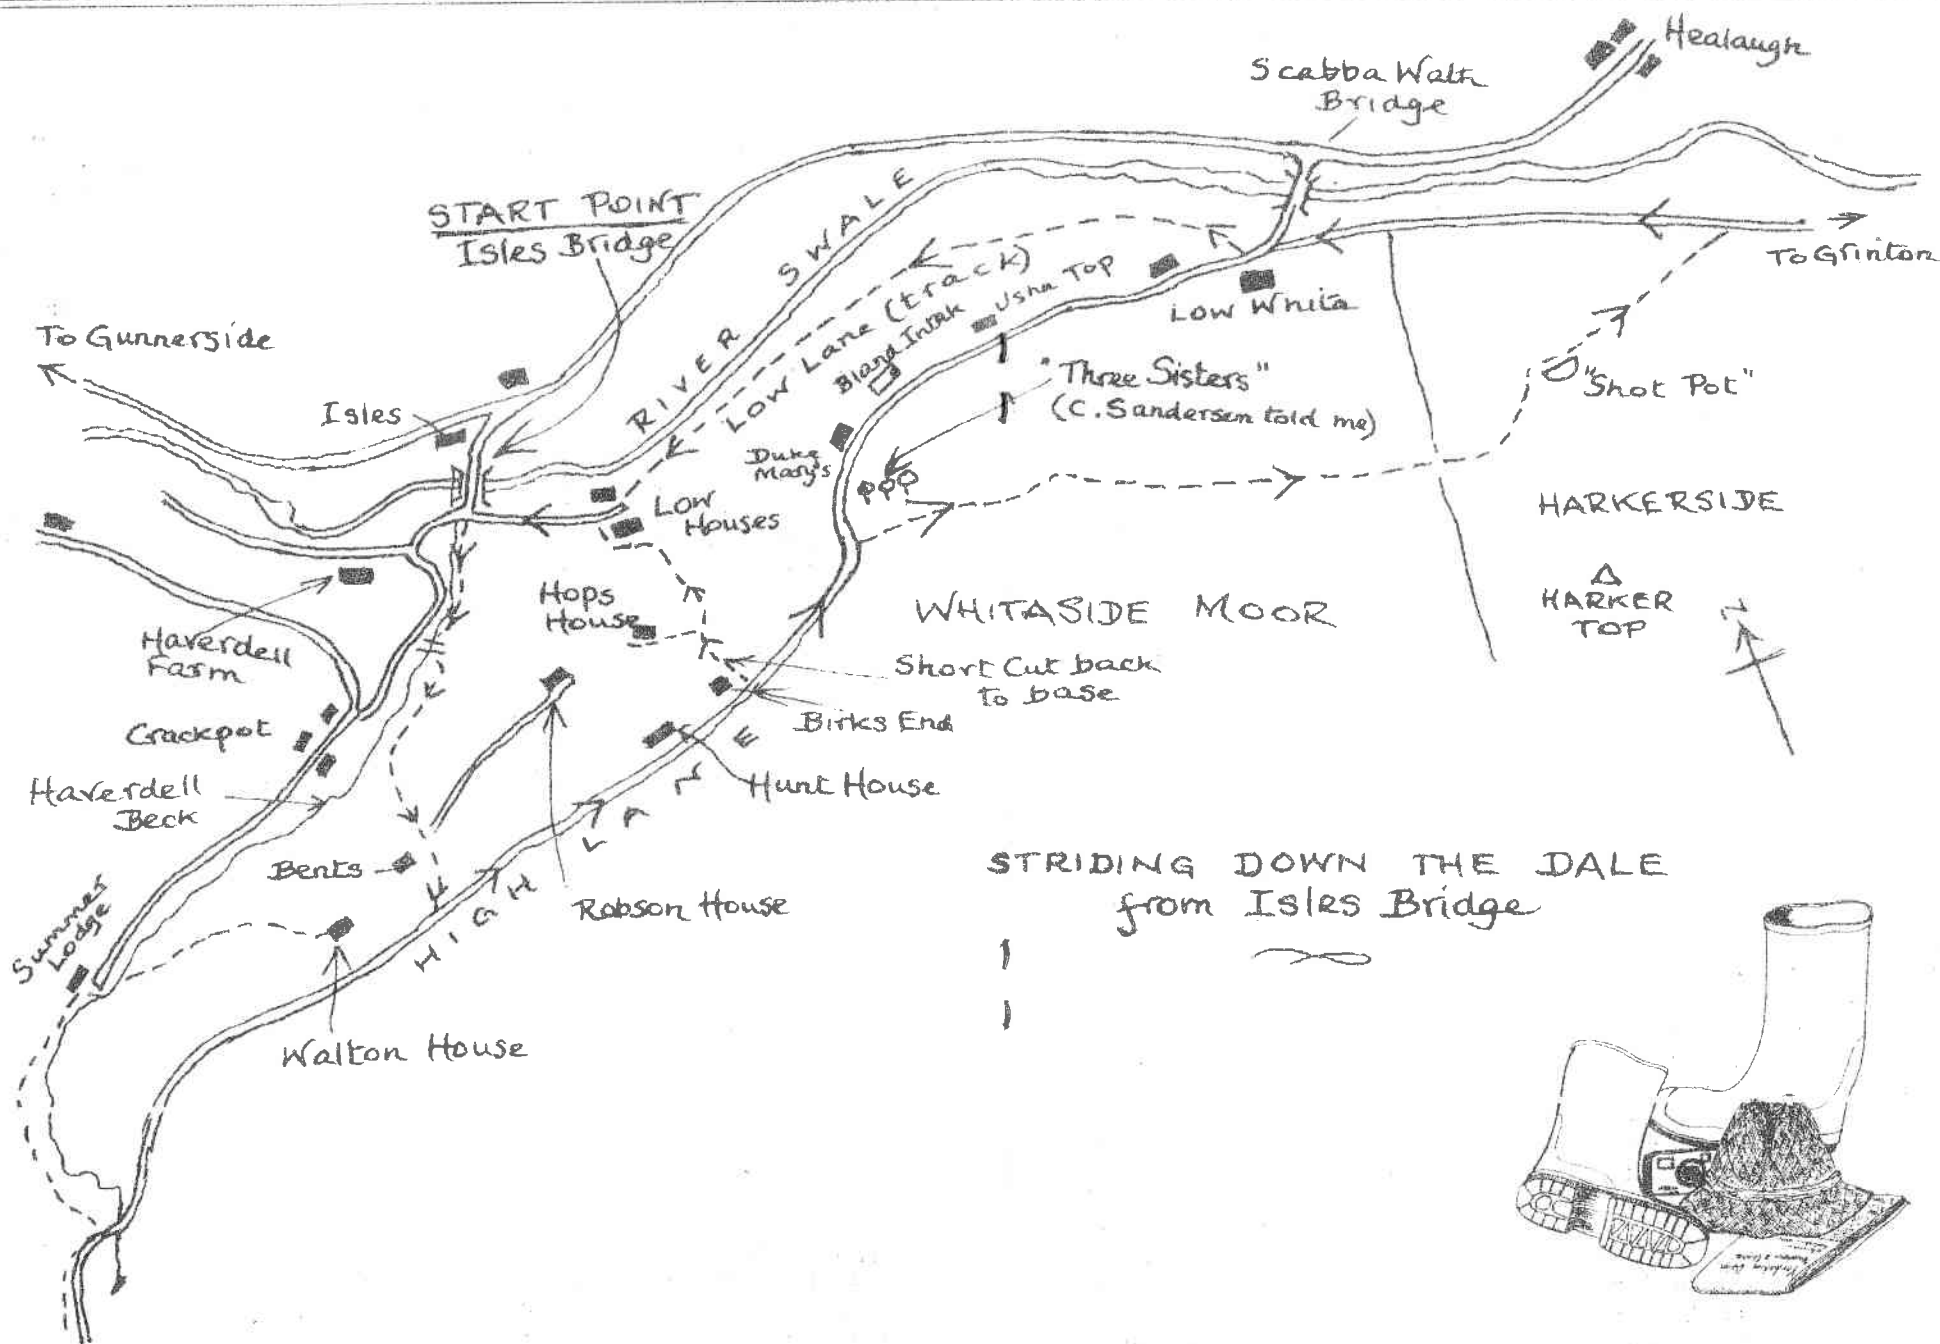 Healaugh
Scabba Wath
Bridge
START POINT
Isles Bridge
RIVER SWALE
To Grinton
Low Lane (track)
Usha Top
Bland Intak
Low Whita
To Gunnerside
Isles
"Three Sisters"
(C. Sandersen told me)
"Shot Pot"
Duke
Mary's
Low
Houses
HARKERSIDE
HARKER
TOP
N
Hops
House
WHITASIDE MOOR
Haverdell
Farm
Short Cut back
to base
Birks End
Crackpot
Hunt House
Haverdell
Beck
HIGH LANE
Bents
Robson House
STRIDING DOWN THE DALE
from Isles Bridge
Summer
Lodge
Walton House